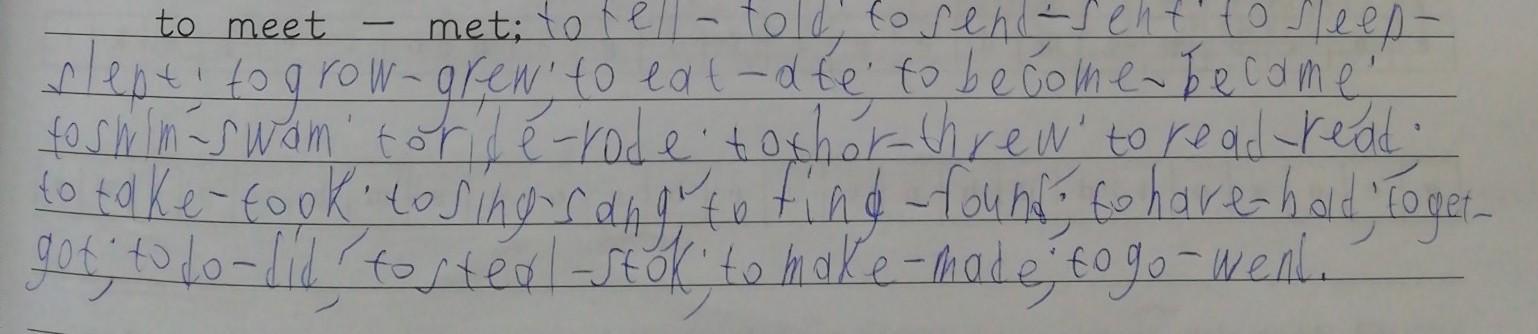 to meet — met; to tell – told; to send – sent; to sleep –
slept; to grow – grew; to eat – ate; to become – became;
to swim – swam; to ride – rode; to thor – threw; to read – read;
to take – took; to sing – sang; to find – found; to have – had; to get –
got; to do – did; to steal – stok; to make – made; to go – went.